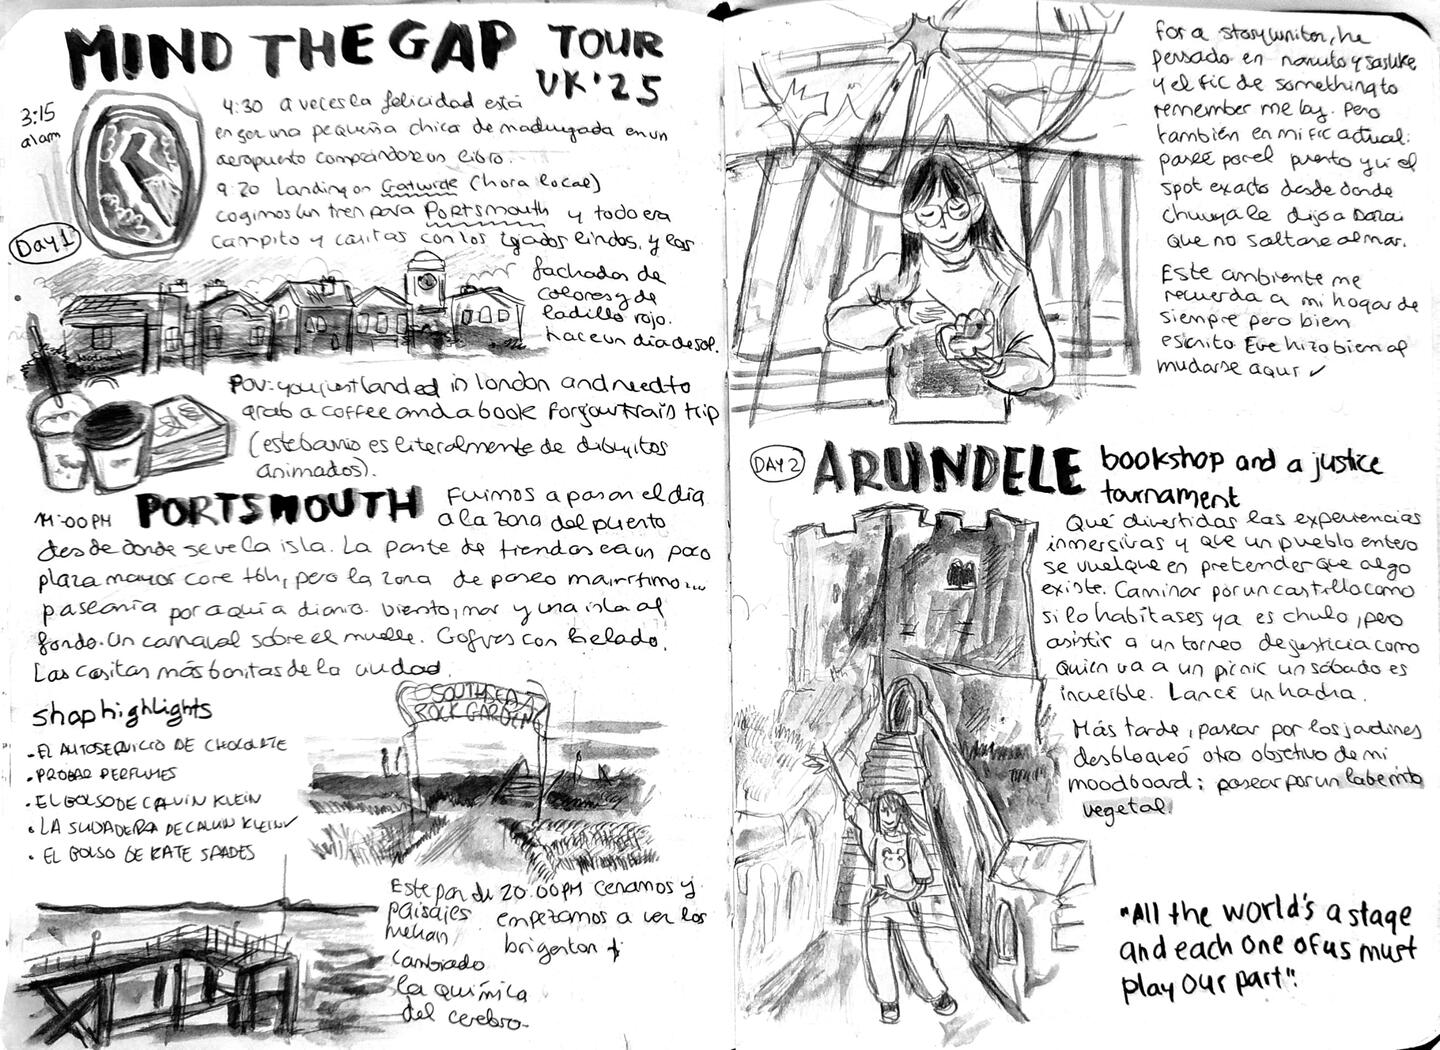 MIND THE GAP TOUR
UK'25
3:15
alarm
4:30 a veces la felicidad está
en ser una pequeña chica de madrugada en un
aeropuerto comprándose un libro.
9:20 Landing on Gatwide (hora local)
cogimos un tren para Portsmouth y todo era
campito y casitas con los tejados lindos, y las
fachadas de
colores y de
ladillo rojo.
hace un día de sol.
Day 1
POV: you just landed in london and need to
grab a coffee and a book for your train trip
(este barrio es literalmente de dibujitos
animados).
PORTSMOUTH
14:00PM
Fuimos a pasar el día
a la zona del puerto
desde donde se ve la isla. La parte de tiendas era un poco
plaza mayor core tbh, pero la zona de paseo marítimo...
pasearía por aquí a diario. Viento, mar y una isla al
fondo. Un carnaval sobre el muelle. Gofres con helado.
Las casitas más bonitas de la ciudad.
shop highlights
· EL AUTOSERVICIO DE CHOCOLATE
· PROBAR PERFUMES
· EL BOLSO DE CALVIN KLEIN
· LA SUDADERA DE CALVIN KLEIN ✓
· EL BOLSO DE KATE SPADES
SOUTHSEA
ROCK GARDENS
Este par de
paisajes
me han
cambiado
la química
del cerebro.
20:00PM cenamos y
empezamos a ver los
brigerton
for a storywriter, he
pensado en naruto y sasuke
y el fic de something to
remember me by. Pero
también en mi fic actual:
paseé por el puerto y vi el
spot exacto desde donde
chuuya le dijo a Dazai
que no saltase al mar.
Este ambiente me
recuerda a mi hogar de
siempre pero bien
escrito. Eve hizo bien al
mudarse aquí ✓
DAY 2
ARUNDELE
bookshop and a justice
tournament
Qué divertidas las experiencias
inmersivas y que un pueblo entero
se vuelque en pretender que algo
existe. Caminar por un castillo como
si lo habitases ya es chulo, pero
asistir a un torneo de justicia como
quien va a un picnic un sábado es
increíble. Lancé un hacha.
Más tarde, pasear por los jardines
desbloqueó otro objetivo de mi
moodboard: pasear por un laberinto
vegetal.
"All the world's a stage
and each one of us must
play our part".